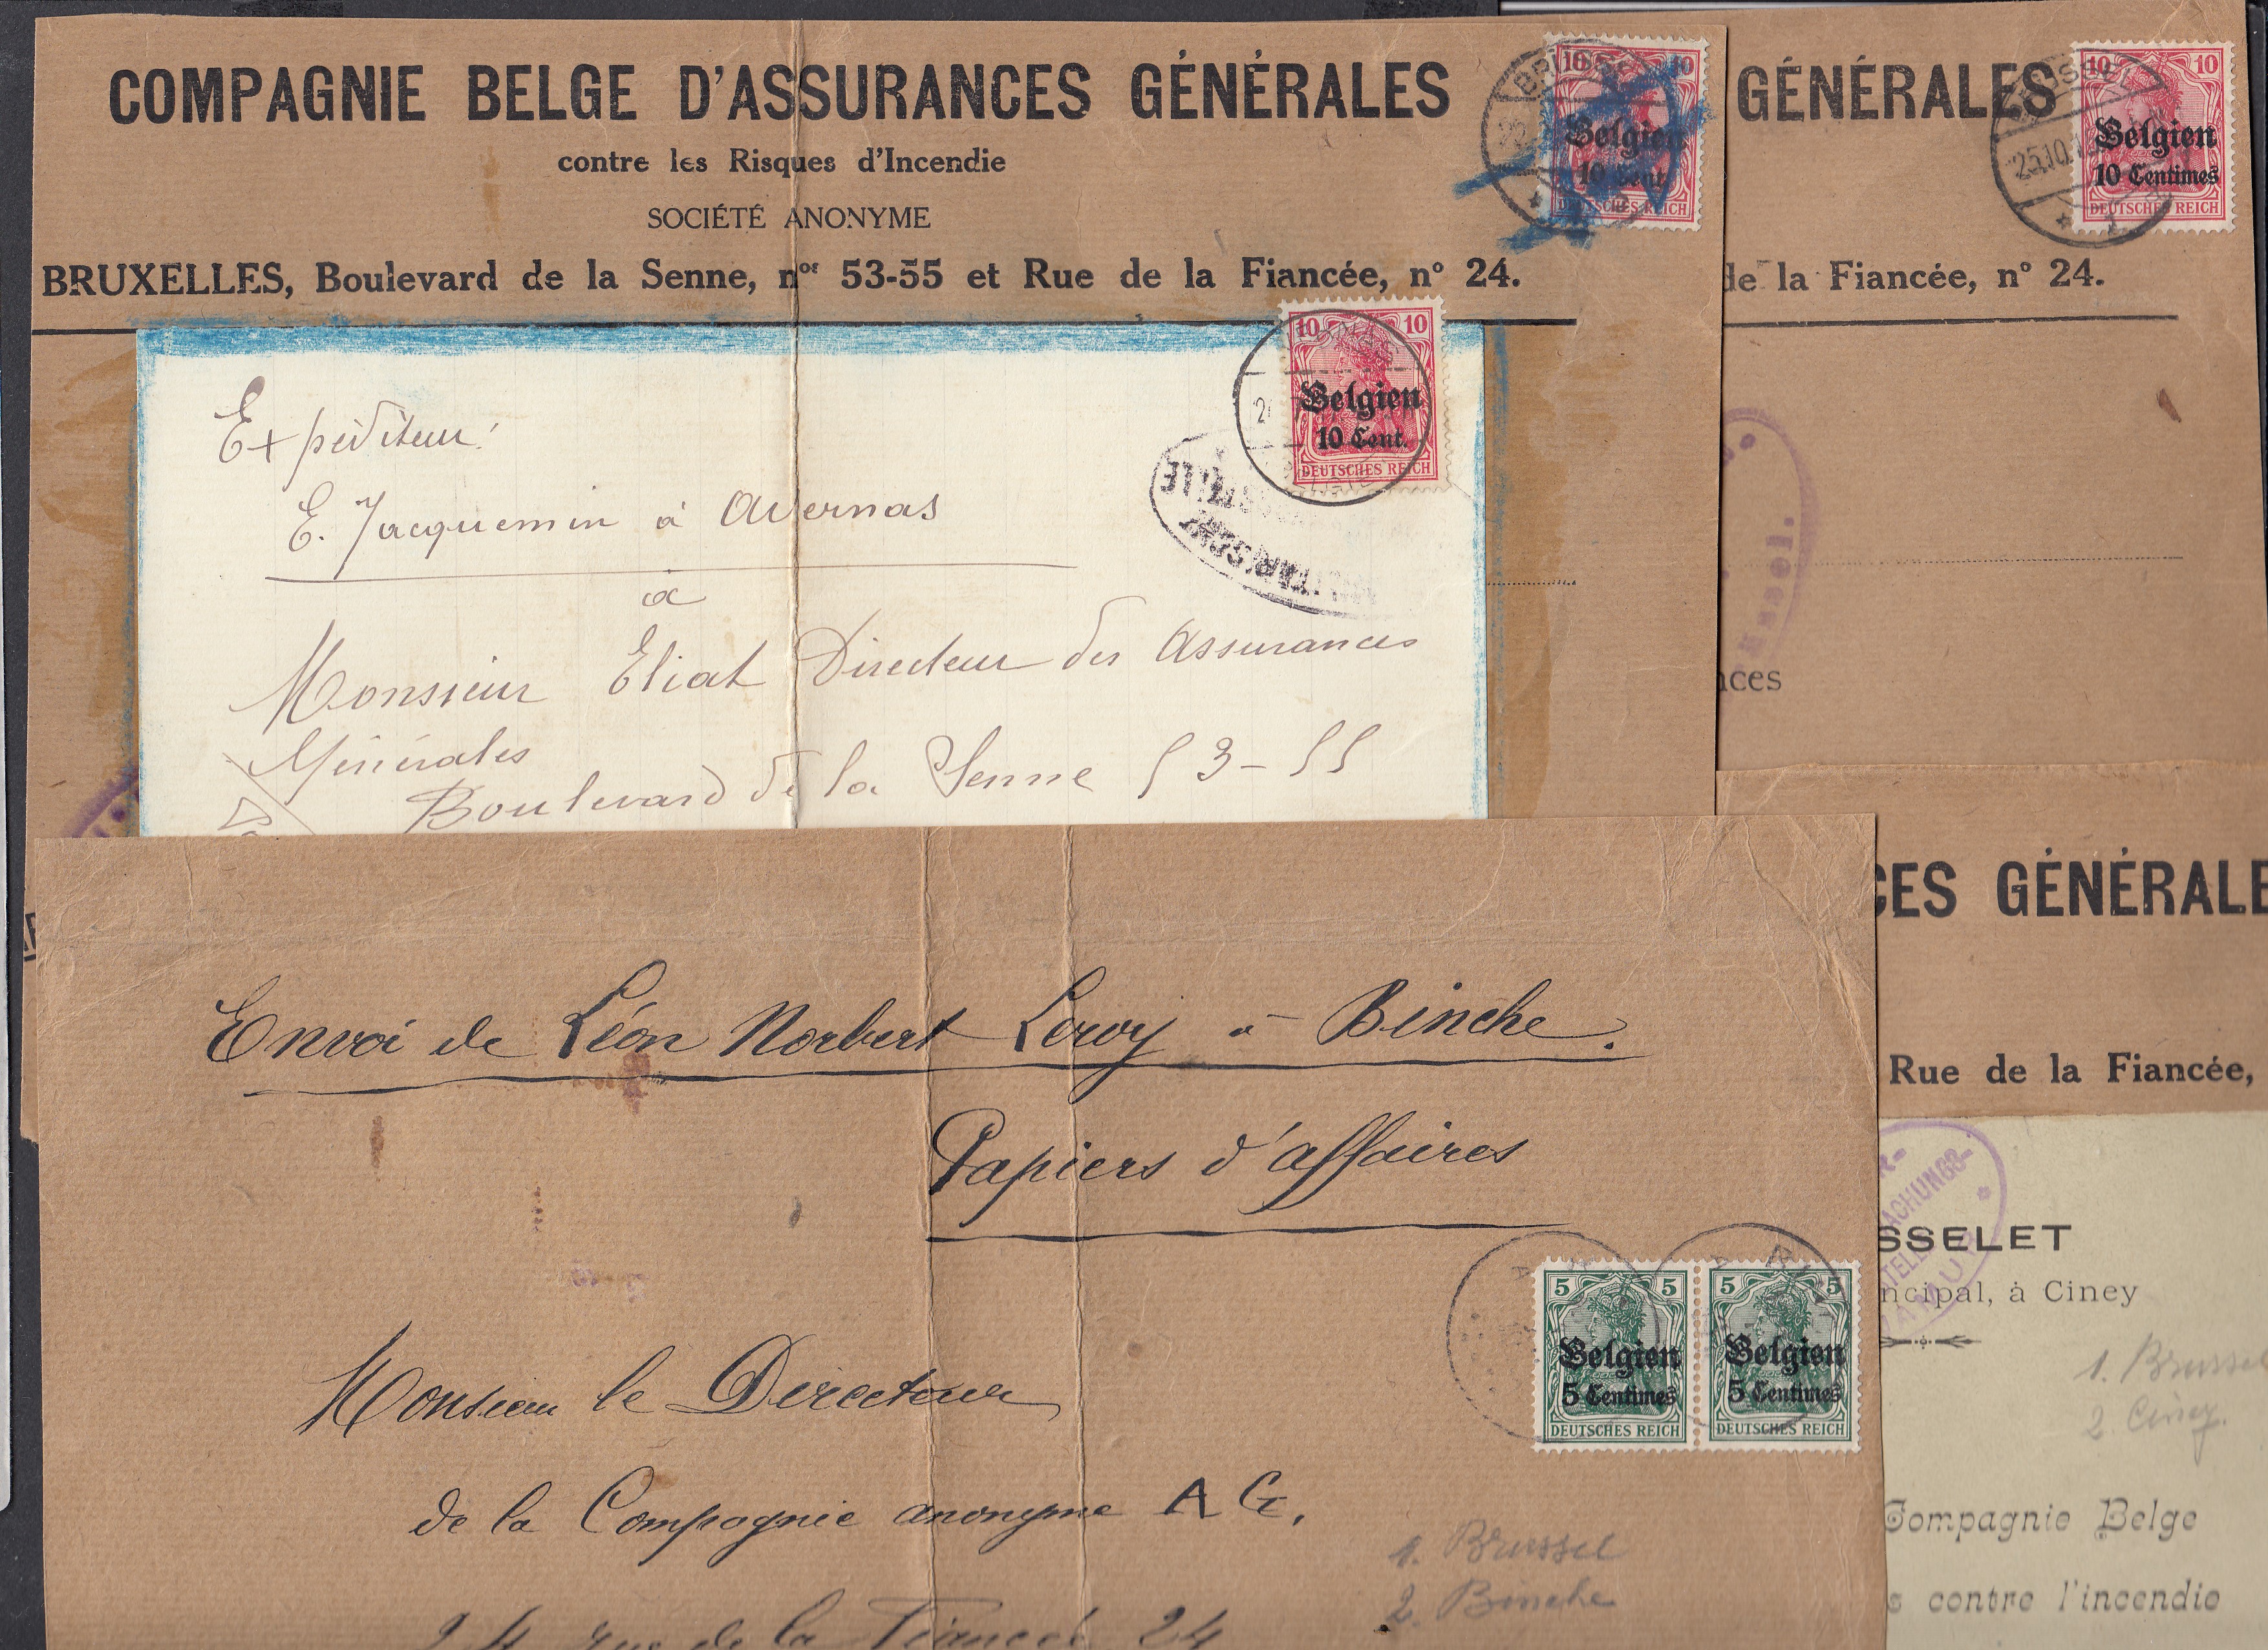 COMPAGNIE BELGE D'ASSURANCES GÉNÉRALES
contre les Risques d'Incendie
SOCIÉTÉ ANONYME
BRUXELLES, Boulevard de la Senne, nos 53-55 et Rue de la Fiancée, n° 24.
10 10
Belgien
10 Cent.
DEUTSCHES REICH
GÉNÉRALES
de la Fiancée, n° 24.
10 10
Belgien
10 Centimes
DEUTSCHES REICH
25.10.1
ssel.
nces
10 10
Belgien
10 Cent.
DEUTSCHES REICH
Expéditeur:
E. Jacquemin à Avernas
à
Monsieur Eliat Directeur des Assurances
Générales
Boulevard de la Senne 53-55
CES GÉNÉRALE
Rue de la Fiancée,
ACHUNGS-
SSELET
ncipal, à Ciney
1. Brussel
2. Ciney.
Compagnie Belge
s contre l'incendie
Envoi de Léon Norbert Leroy à Binche.
Papiers d'affaires
5 5
Belgien
5 Centimes
DEUTSCHES REICH
5 5
Belgien
5 Centimes
DEUTSCHES REICH
Monsieur le Directeur
de la Compagnie anonyme A G.
24 rue de la Fiancée 24
1. Brussel
2. Binche